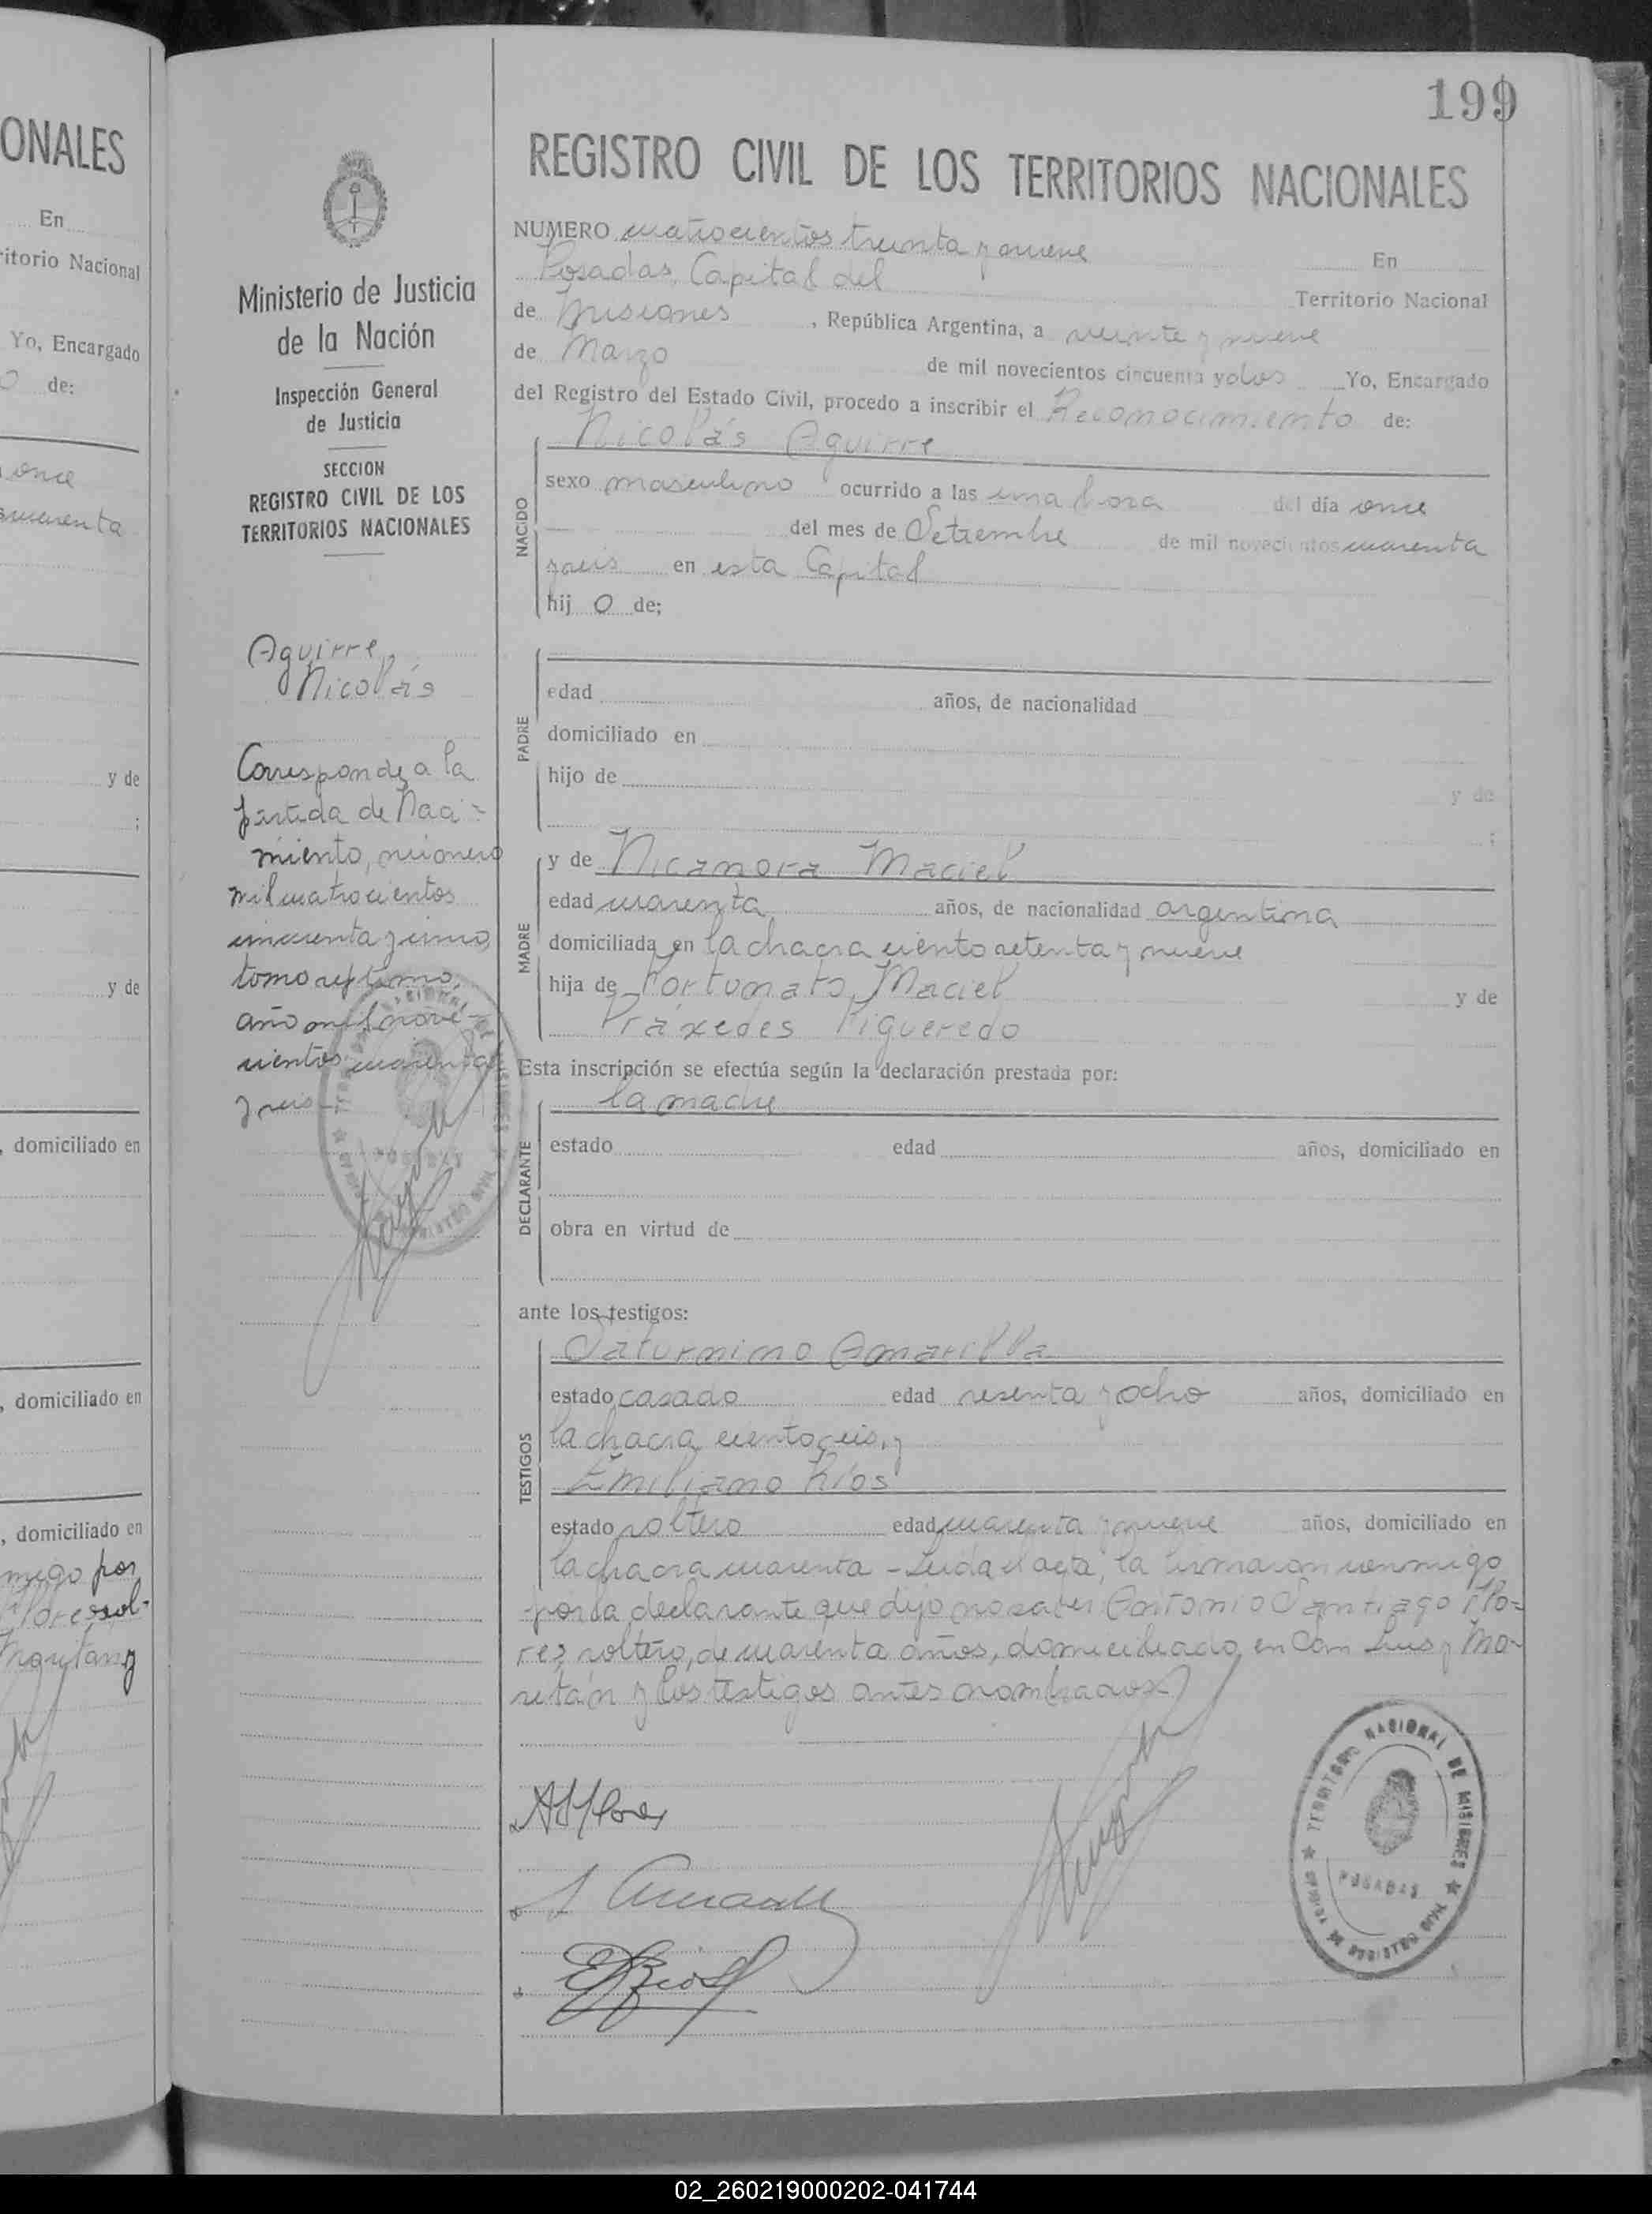 ONALES
En
ritorio Nacional
Yo, Encargado
o de:
once
cuarenta
y de
;
y de
, domiciliado en
, domiciliado en
, domiciliado en
migo por
Flores sol-
y
Ministerio de Justicia
de la Nación
Inspección General
de Justicia
SECCION
REGISTRO CIVIL DE LOS
TERRITORIOS NACIONALES
Aguirre,
Nicolás
Corresponde a la
partida de Naci-
miento, número
mil cuatrocientos
cincuenta y uno,
tomo septimo,
año mil nove-
cientos cuarenta
y seis.-
199
REGISTRO CIVIL DE LOS TERRITORIOS NACIONALES
NUMERO cuatrocientos treinta y nueve En
Posadas, Capital del Territorio Nacional
de Misiones , República Argentina, a veinte y nueve
de Marzo de mil novecientos cincuenta y dos Yo, Encargado
del Registro del Estado Civil, procedo a inscribir el Reconocimiento de:
NACIDO
Nicolás Aguirre
sexo masculino ocurrido a las una hora del día once
del mes de Setiembre de mil novecientos cuarenta
y seis en esta Capital
hij o de;
PADRE
edad años, de nacionalidad
domiciliado en
hijo de y de
;
MADRE
y de Nicanora Maciel
edad cuarenta años, de nacionalidad argentina
domiciliada en la chacra ciento setenta y nueve
hija de Fortunato Maciel y de
Práxedes Figueredo
Esta inscripción se efectúa según la declaración prestada por:
DECLARANTE
la madre
estado edad años, domiciliado en
obra en virtud de
ante los testigos:
TESTIGOS
Saturnino Amarilla
estado casado edad sesenta y ocho años, domiciliado en
la chacra ciento seis, y
Emiliano Ríos
estado soltero edad cuarenta y nueve años, domiciliado en
la chacra cuarenta - Leida el acta, la firmaron conmigo
por la declarante que dijo no saber Antonio Santiago Flo-
res, soltero, de cuarenta años, domiciliado en San Luis y Mo-
ritán y los testigos antes nombrados
ASFlores
S Amarilla
E Rios
TERRITORIO NACIONAL DE MISIONES
POSADAS
OFICINA DE REGISTRO CIVIL
02_260219000202-041744